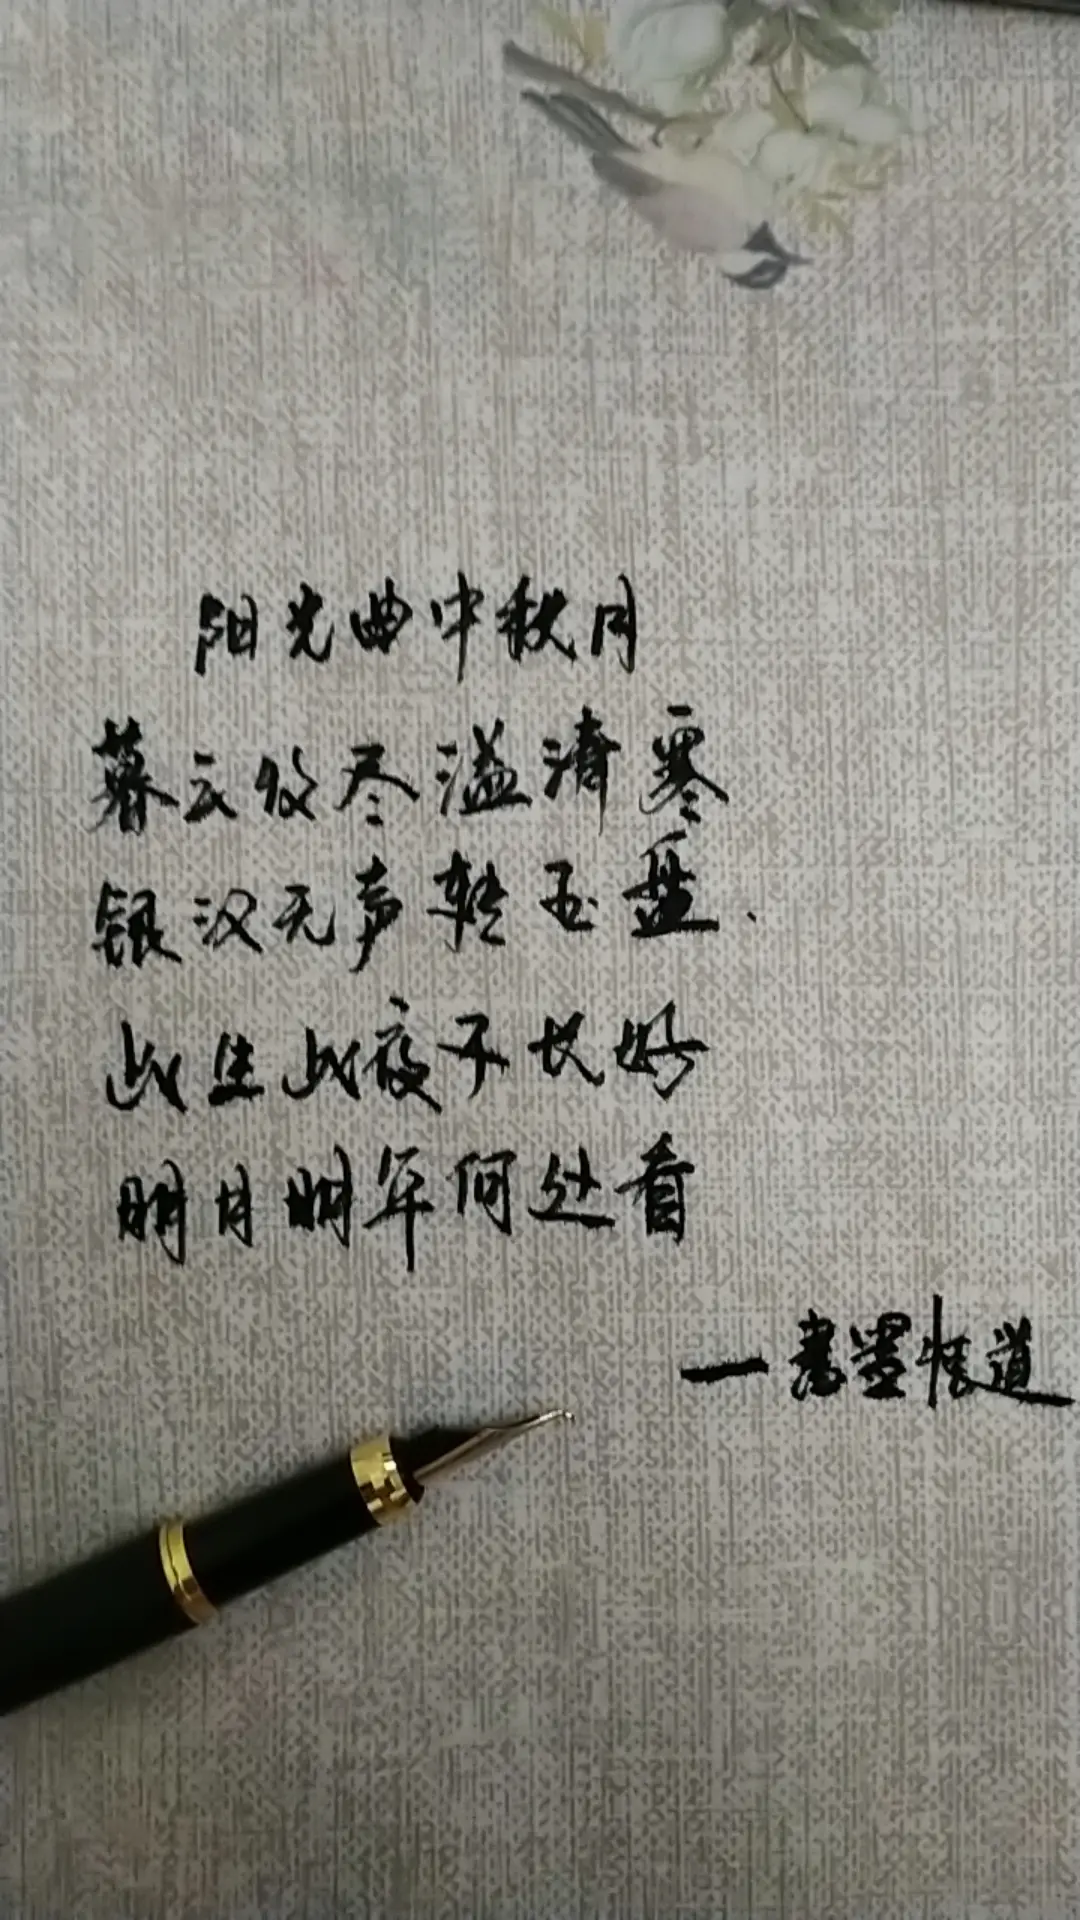 阳光曲中秋月
暮云收尽溢清寒
银汉无声转玉盘.
此生此夜不长好
明月明年何处看
一書墨情道